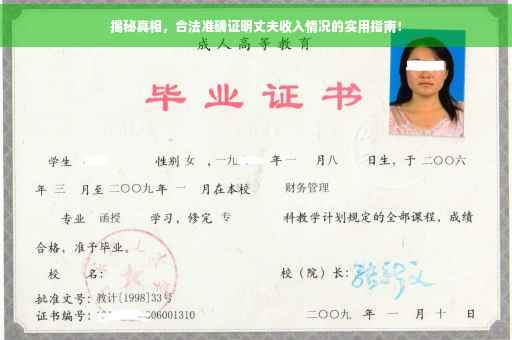 揭秘真相，合法准确证明丈夫收入情况的实用指南！
成人高等教育
毕业证书
学生 性别 女 ，一九 年 一 月 八 日生，于 二〇〇六
年 三 月至 二〇〇九 年 一 月在本校 财务管理
专业 函授 学习，修完 专 科教学计划规定的全部课程，成绩
合格，准予毕业。
校 名： 校（院）长：
批准文号：教计[1998]33号
证书编号： 06001310 二〇〇九 年 一 月 十 日